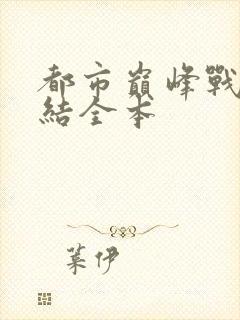 都市巔峰戰
結全本
葉伊